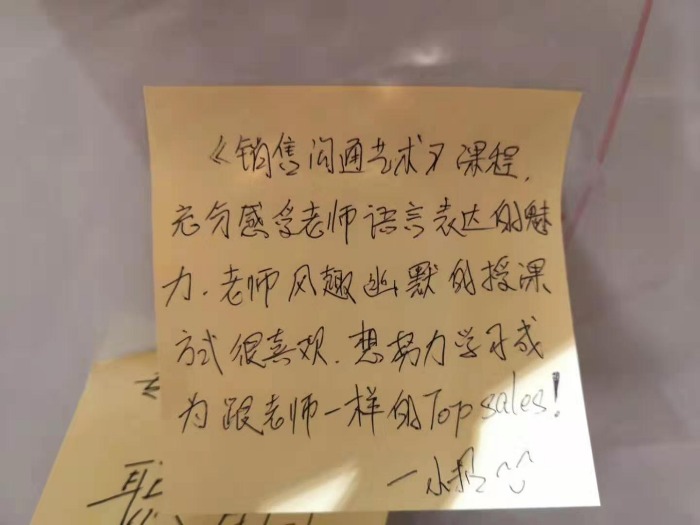 《销售沟通艺术》课程,
充分感受老师语言表达的魅
力.老师风趣幽默的授课
方式很喜欢.想努力学习成
为跟老师一样的Top sales!
一小